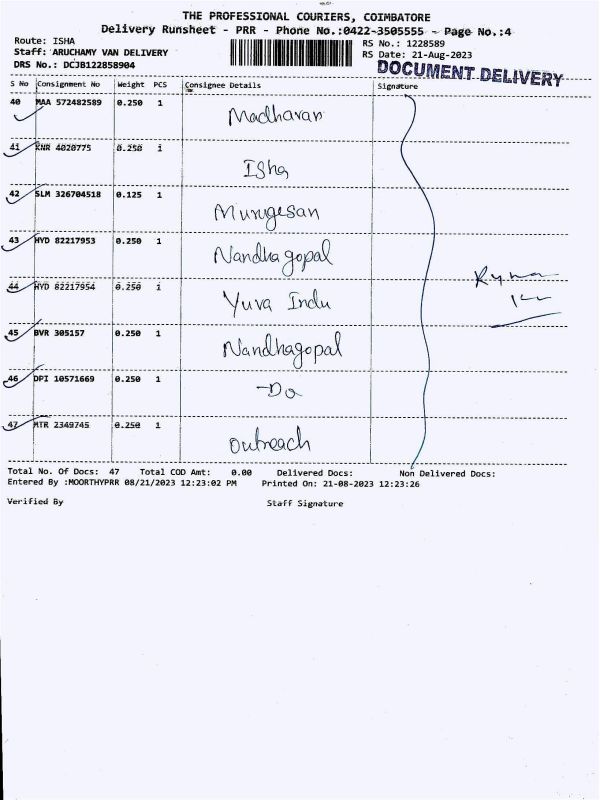 THE PROFESSIONAL COURIERS, COIMBATORE
Delivery Runsheet - PRR - Phone No.:0422-3505555 - Page No.:4
Route: ISHA
RS No.: 1228589
Staff: ARUCHAMY VAN DELIVERY
RS Date: 21-Aug-2023
DRS No.: DCJB122858904
DOCUMENT DELIVERY
S No Consignment No Weight PCS Consignee Details Signature
40 MAA 572482589 0.250 1 Madhavan
41 KNR 4020775 0.250 1 Isha
42 SLM 326704518 0.125 1 Murugesan
43 HYD 82217953 0.250 1 Nandhagopal
44 HYD 82217954 0.250 1 Yuva Indu
45 BVR 305157 0.250 1 Nandhagopal
46 DPI 10571669 0.250 1 -Do
47 MTR 2349745 0.250 1 Outreach
Total No. Of Docs: 47 Total COD Amt: 0.00 Delivered Docs: Non Delivered Docs:
Entered By :MOORTHYPRR 08/21/2023 12:23:02 PM Printed On: 21-08-2023 12:23:26
Verified By Staff Signature